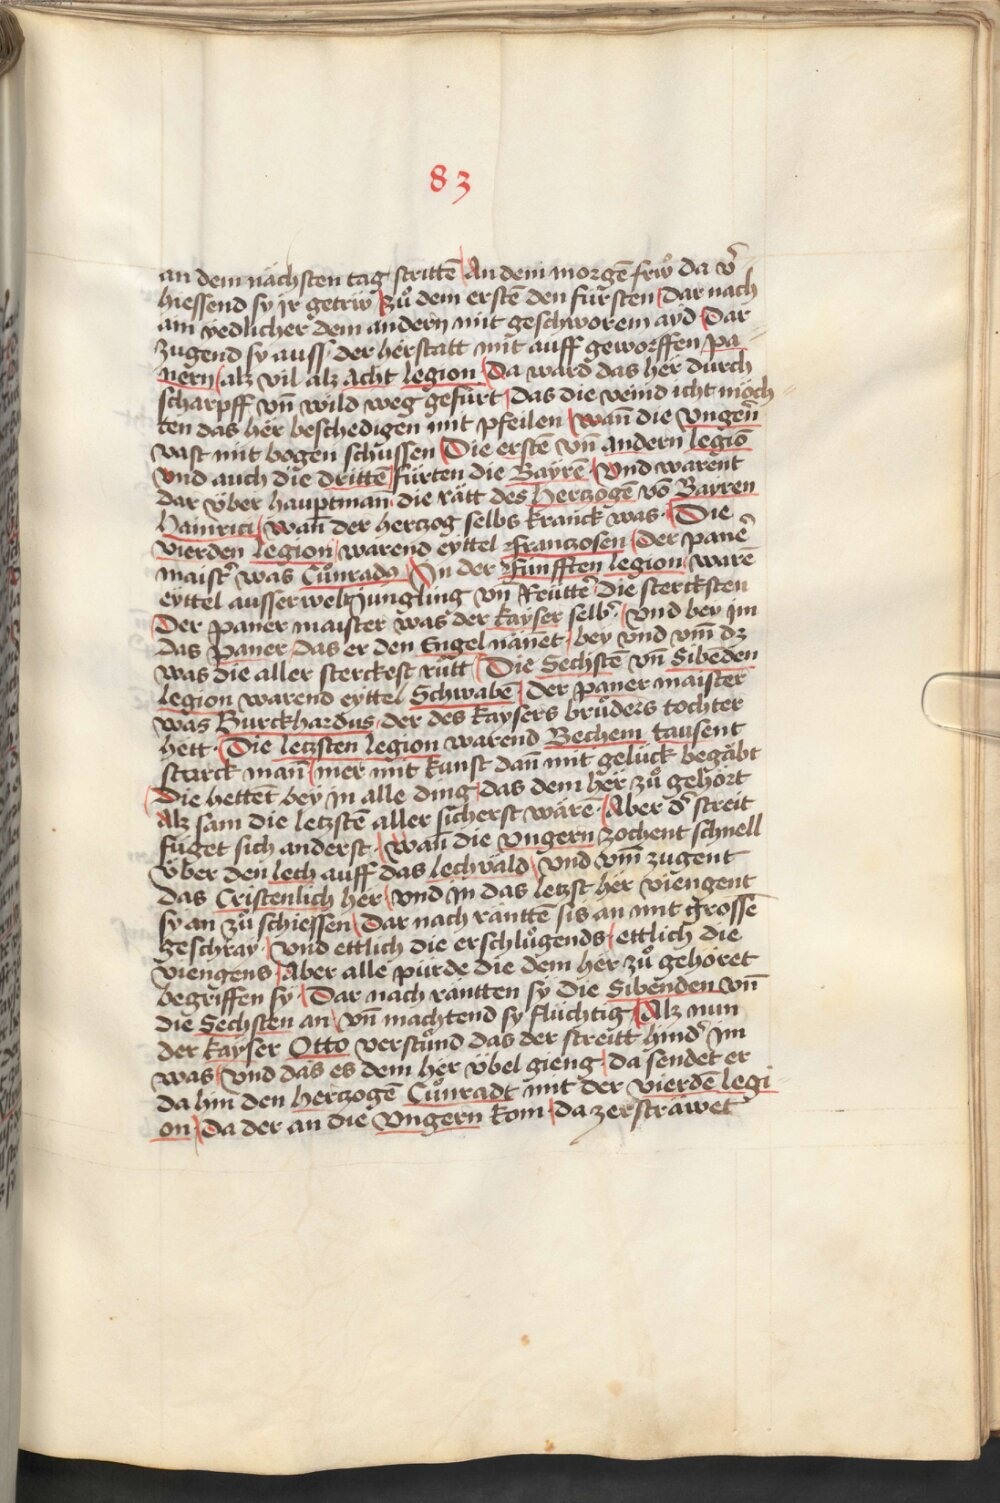 83
an dem nächsten tag strittē An dem morgē frwͦ da v̄
hiessend sy jr getriw zuͦ dem erstē den fürsten Dar nach
ain yedlicher dem andern mit geschworem ayd Dar
zugend sy auss der herstatt mit auff geworffen pa
nern alz vil alz acht legion Da ward das her durch
scharpff vn̄ wild weg gefürt das die veind icht möch
ten das her beschedigen mit pfeilen wan̄ die Vngern̄
vast mit bogen schussen Die erstē vn̄ andern legiō
vnd auch die drittē fürten die Bayrē Vnd warent
dar über hauptman die rätt des Hertzogē vō Bayren
Hainrici wan̄ der hertzog selbs kranck was Die
vierden legion warend eyttel Frantzosen Der panē
maistr̄ was Cuͦnrado In der Fünfften legion warē
eyttel ausserwelt Jungling vn̄ Reüttr̄ die stercksten
Der paner maister was der kayser selb vnd bey jm
das paner das er den Engel nānet bey vnd vm̄ dz
was die aller sterckest rütt Die Sechstē vn̄ Sibenden
legion warend eyttel Schwabē Der paner maister
was Burckhardus der des kaysers bruͦders tochter
hett Die letzsten legion warend Bechem tausent
starck man̄ mer mit kunst dan̄ mit gelück begäbt
Die hettet bey jn alle ding das dem her zuͦ gehört
Alz sam die letzstē aller sicherst wärē Aber dr̄ streit
füget sich anderst wan̄ die vngern zochent schnell
Über den lech auff das lechväld vnd vm̄ zugent
das Cristenlich her vnd in das letzst her viengent
sy an zuͦ schiessen Dar nach ranttē sis an mit grossē
geschray vnd ettlich die erschluͦgends ettlich die
viengens Aber alle pürde die dem her zuͦ gehöret
begriffen sy Dar nach rantten sy die Sibenden vn̄
die Sechsten an vn̄ machtend sy flüchtig Alz nun
der kayser Otto verstuͦnd das der streitt hindr̄ jm
was vnd das es dem her übel gieng da sendet er
da hin den hertzogē Cuͦnradt mit der vierdē legi
on Da der an die Vngern kom da zersträwet